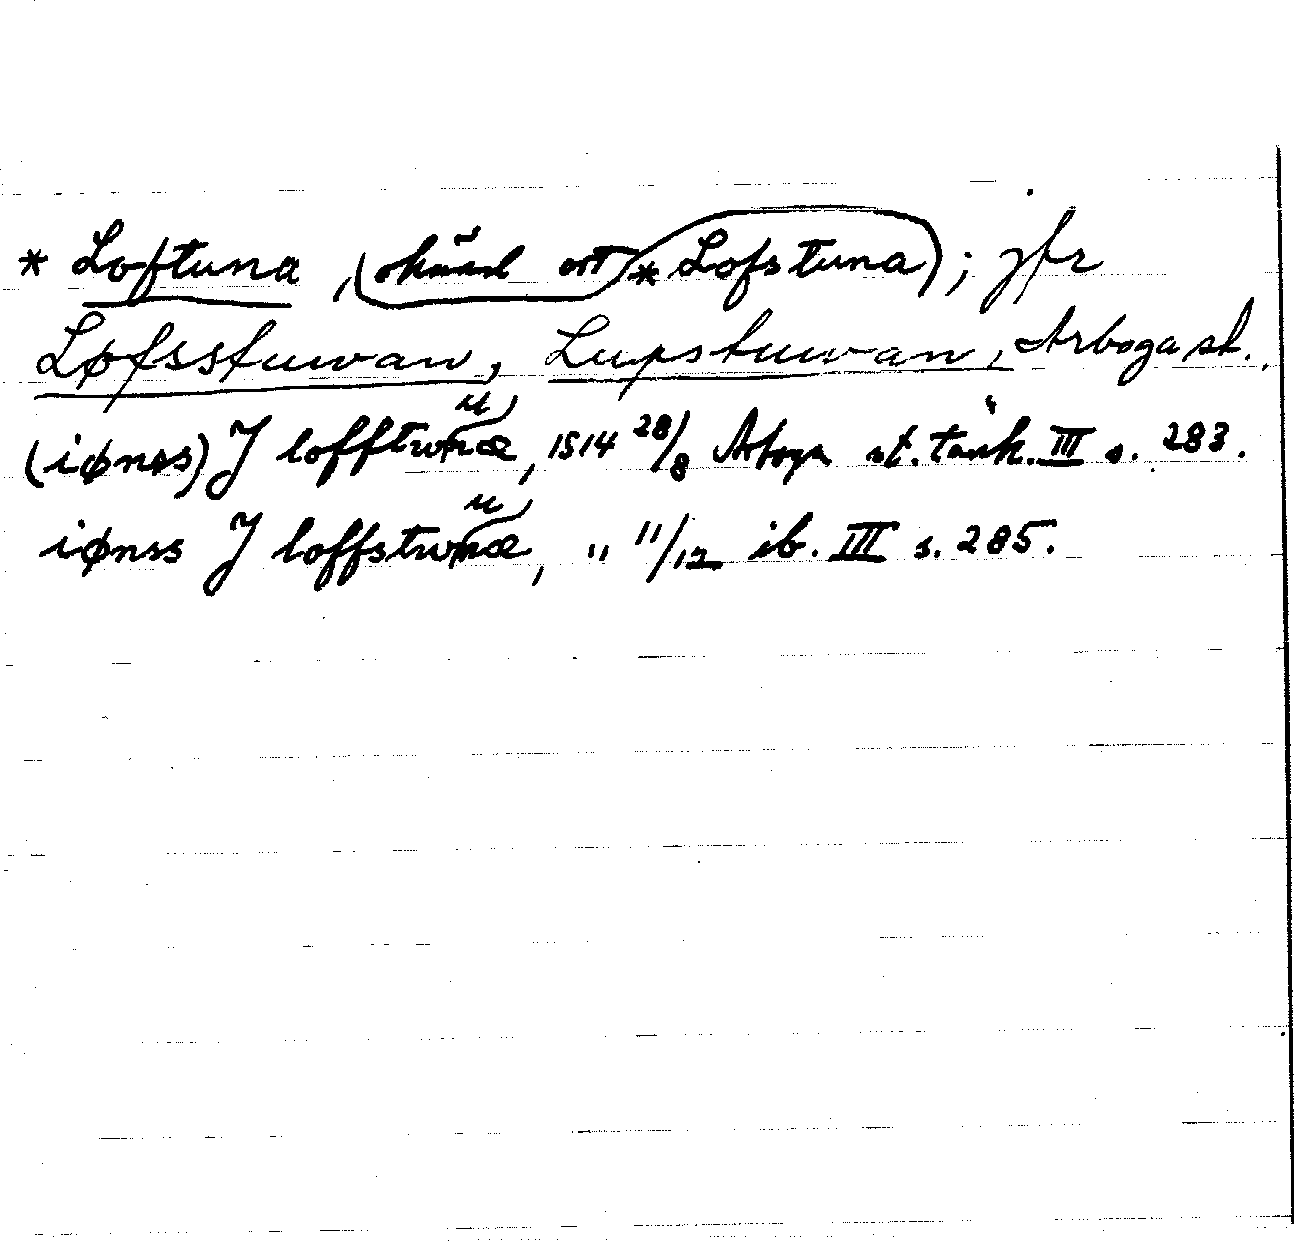 * Loftuna, (okänd ort * Lofstuna); jfr
Løfsstuwan, Lupstuwan, Arboga st.
(iønss) J lofftwnæ, 1514 28/8 Arboga st. tänk. III s. 283.
iønss J loffstwnæ, " 11/12 ib. III s. 285.